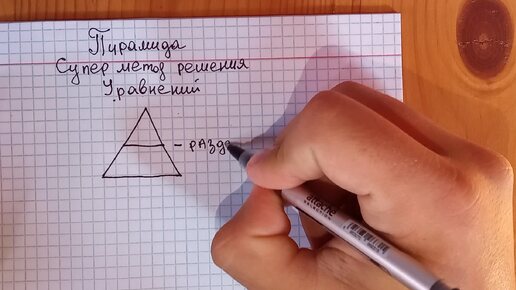 Пирамида
Супер метод решения
Уравнений
- разде